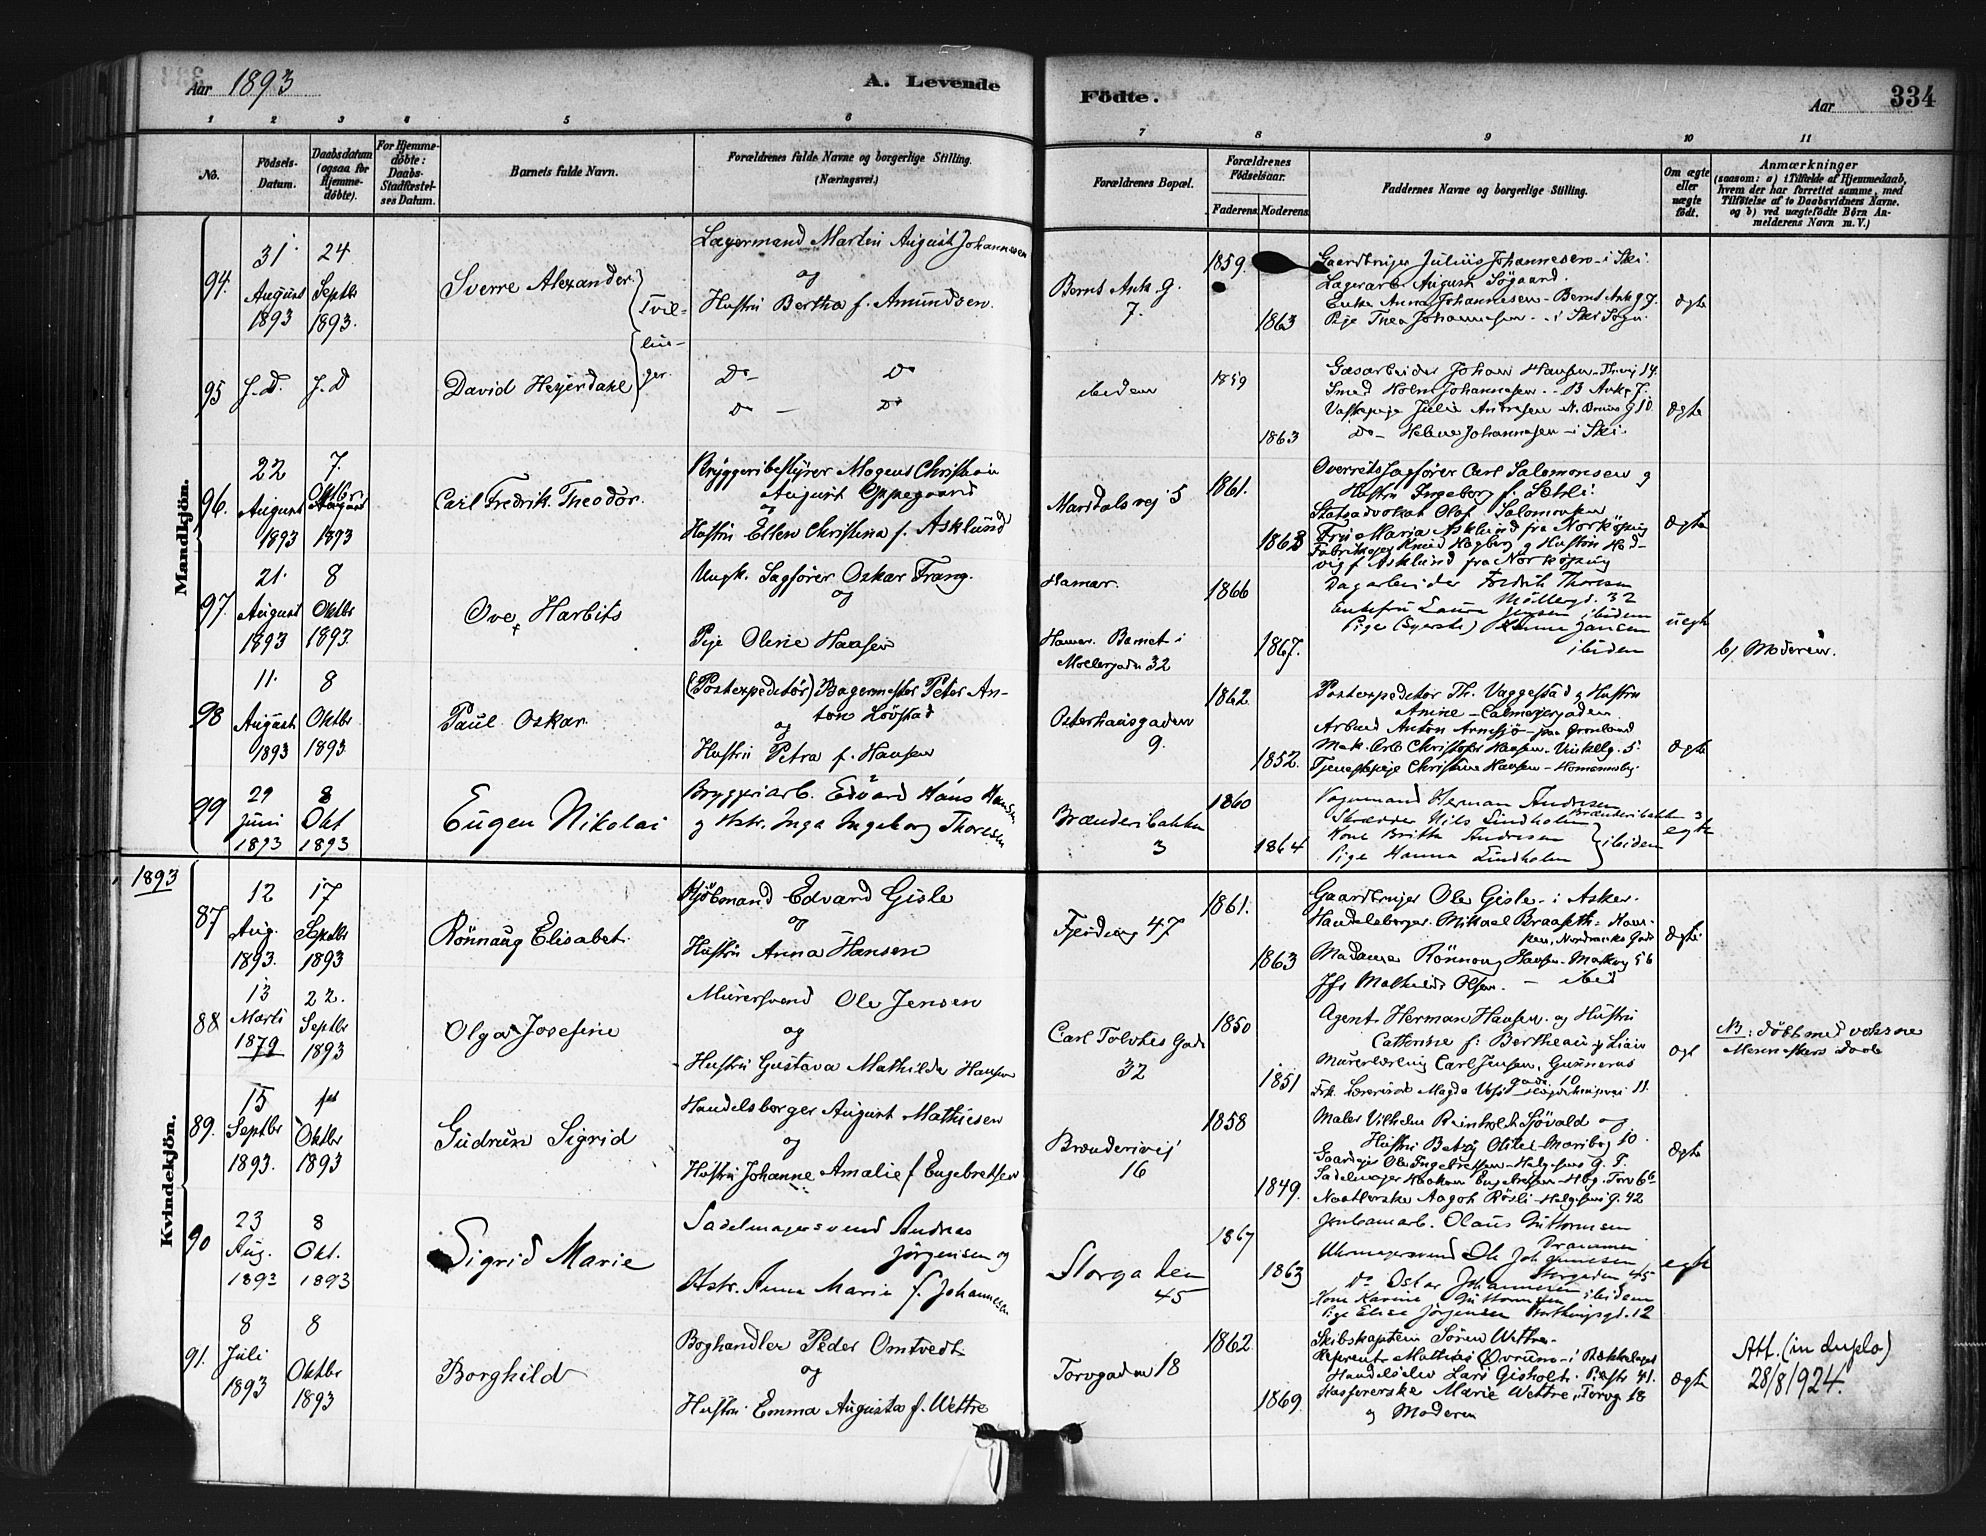 Aar 1893
A. Levende
Födte.
Aar
334
1 2 3 4 5 6 7 8 9 10 11
No.
Födsels-Datum.
Daabsdatum (ogsaa for Hjemmedöbte).
For Hjemmedöbte: Daabs-Stadfæstelses Datum.
Barnets fulde Navn.
Forældrenes fulde Navne og borgerlige Stilling. (Næringsvei.)
Forældrenes Bopæl.
Forældrenes Födselsaar.
Faderens. Moderens.
Faddernes Navne og borgerlige Stilling.
Om ægte eller uægte födt.
Anmærkninger
(saasom: a) i Tilfælde af Hjemmedaab, hvem der har forrettet samme, med Tilföielse af to Daabsvidners Navne. og b) ved uægtefödte Börn Anmelderens Navn m. V.)
Mandkjön.
94.
31. August 1893
24. Septbr 1893.
Sverre Alexander.
Tvil-
lin-
ger.
Lagermand Martin August Johannesen
og
Hustru Bertha f. Amundsen.
Bernt Ank. g. 7.
1859.
1863
Gaardbruger Julius Johannesen - i Ski.
Lagerarb. August Sögaard.
Enke Anna Johannesen - Bernt Ank g 7.
Pige Thea Johannesen - i Ski Sogn.
ægte
95
J. D. J. D
David Heyerdahl
Do - Do
Do - Do
ibidem
1859
1863
Gasarbeider Johan Hansen - Thvej 14.
Smed Holm Johannesen - B Ankg 7.
Vaskepige Julie Andresen - N. Bruns g 10.
Do - Helene Johannesen - i Ski.
ægte
96.
22 August 1893
7. Oktbr 1893
Carl Fredrik Theodor.
Bryggeribestyrer Mogens Christian
August Oppegaard
og
Hustru Ellen Christina f. Asklund
Maridalsvej 5
1861.
1863
Overretssagförer Carl Salomonsen og
Hustru Ingeborg f. Sætréi.
Statsadvokat Olaf Salomonsen
Fru Maria Asklund fra Norköping
Fabrikejer Knud Hagberg og Hustru Hed-
vig f Asklund fra Norköping
ægte
97.
21. August 1893
8 Oktbr 1893.
Ove Harbits
Ungk. Sagförer Oskar Frang.
og
Pige Oline Hansen
Hamar.
Hamar. Barnet i
Möllergaden 32
1866
1867.
Dagarbeider Fredrik Thoresen
Möllergd. 32
Enkefru Laura Jensen ibidem
Pige (Syerske) Hanna Jansen
ibidem
uegte
b/ Moderen.
98
11. August 1893
8 Oktbr 1893.
Paul Oskar
(Postexpeditör) Bagermester Peter An-
ton Lövstad
og
Hustru Petra f. Hansen
Osterhausgaden 9.
1862
1852.
Postexpeditör Th. Vaggestad og Hustru
Anine - Calmeyergaden
Arbmd Anton Arnesjö - paa Grönland
Mek. Arb Christofer Hansen - Vinkelg. 5.
Tjenestepige Christine Hansen - Homannsby.
ægte
99
29 Juni 1893
8 Okt 1893
Eugen Nikolai
Bryggeriarb. Edvard Hans Hansen
og Hstr. Inga Ingeborg Thoresen
Brænderibakken 3
1860
1864
Vognmand Herman Andresen
Brænderibakken 3
Skrædder Nils Lindholm
Kone Britta Andresen
Pige Hanna Lindholm
ibidem
egte
1893
Kvindekjön.
87
12 Aug. 1893.
17 Septbr 1893
Rönnaug Elisabet.
Kjöbmand Edvard Gisle
og
Hustru Anna Hansen
Fjerding 47
1861.
1863
Gaardbruger Ole Gisle - i Asker.
Handelsborger Mikael Braaseth -
Madame Rönnoug Hansen - Markvg 56
Jfr Mathilde Olsen. - ibid
ægte
88
13 Marts 1879
22. Septbr 1893
Olga Josefine
Murersvend Ole Jensen
og
Hustru Gustava Mathilde Hansen
Carl Tolvtes Gade 32
1850
1851
Agent Herman Hansen. og Hustru
Cathrine f. Bertheau, Lian
Murerlærling Carl Jensen, Gunnerus
gade 10
Frk. Lærerinde Magda
ægt
NB: döbt med voksne
Menneskers Daab
89.
15 Septbr 1893.
1ste Oktbr 1893
Gudrun Sigrid
Handelsborger August Mathiesen
og
Hustru Johanne Amalie f Engebretsen
Brænderivej 16
1858
1849.
Maler Vilhelm Reinholdt Sjövald og
Hustru Betzy Otilie - Maribog 10.
Gaardejer Ole Engebretsen - Helgesens G. 7.
Sadelmager Haakon Engebretsen - Hbg. Torv 6b
Naatlerske Aagot Rösli - Helgesens G. 42
ægte
90
23 Aug. 1893
8 Okt. 1893
Sigrid Marie
Sadelmagersvend Andreas
Jörgensen og
Hstr. Anna Marie f. Johannesen
Storgaden 45
1867
1863
Jernbanearb. Olaus Guttormsen
Drammen
Uhrmagersvend Ole Johannesen
Storgaden 45
Do Oskar Johannesen
Kone Karine Guttormsen ibidem
Pige Elise Jörgensen Storthingsgd. 12
egte
91.
8 Juli 1893
8 Oktbr 1893
Borghild
Boghandler Peder Omtvedt
og
Hustru Emma Augusta f. Wettre
Torvgaden 18
1862
1869.
Skibskaptein Sören Wettre.
Referent Mathias Övrum - i Rökkelaget
Handelselev Lars Gisholt - Præstg 41.
Kassererske Marie Wettre, Torvg 18
og Moderen
ægte
Att. (in duplo)
28/8 1924.